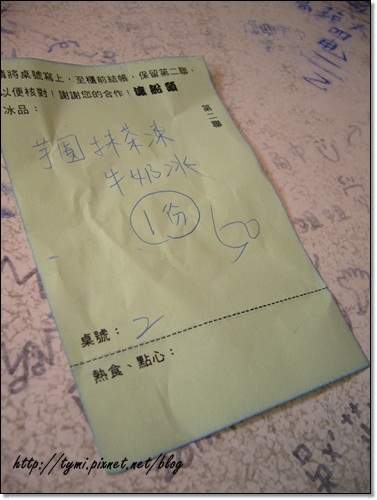 請將桌號寫上，至櫃前結帳，保留第二聯，
以便核對！謝謝您的合作！
冰品：
第二聯
芋圓抹茶凍
牛奶冰
1份
60
桌號：2
熱食、點心：
http://tymi.pixnet.net/blog